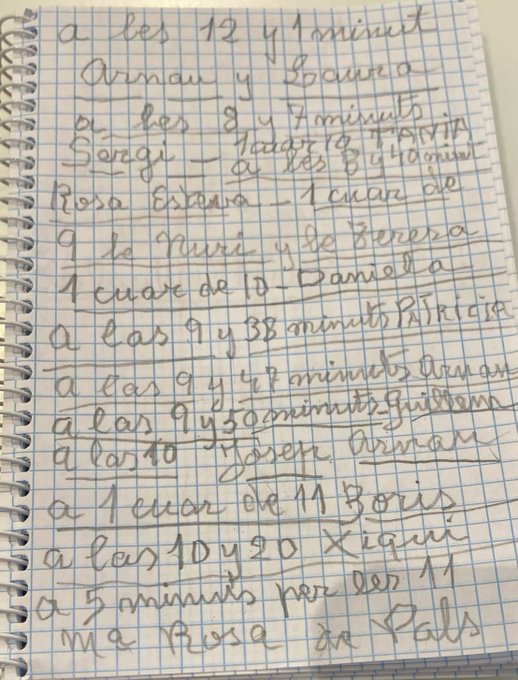 a les 12 y 1 minut
Arnau y Laura
a les 8 y 7 minuts
Sergi - 1 cuar TANIA
a les 8 y 40 minut
Rosa - 1 cuar de
9 le Nuri y le Terera
1 cuar de 10 - Daniela
a las 9 y 38 minuts PATRICIA
a las 9 y 47 minuts Arnau
a las 9 y 50 minuts - Guillem
a las 10 Josep Arnau
a 1 cuar de 11 Boris
a las 10 y 20 Xiqui
a 5 minuts per les 11
Ma Rosa de Pals